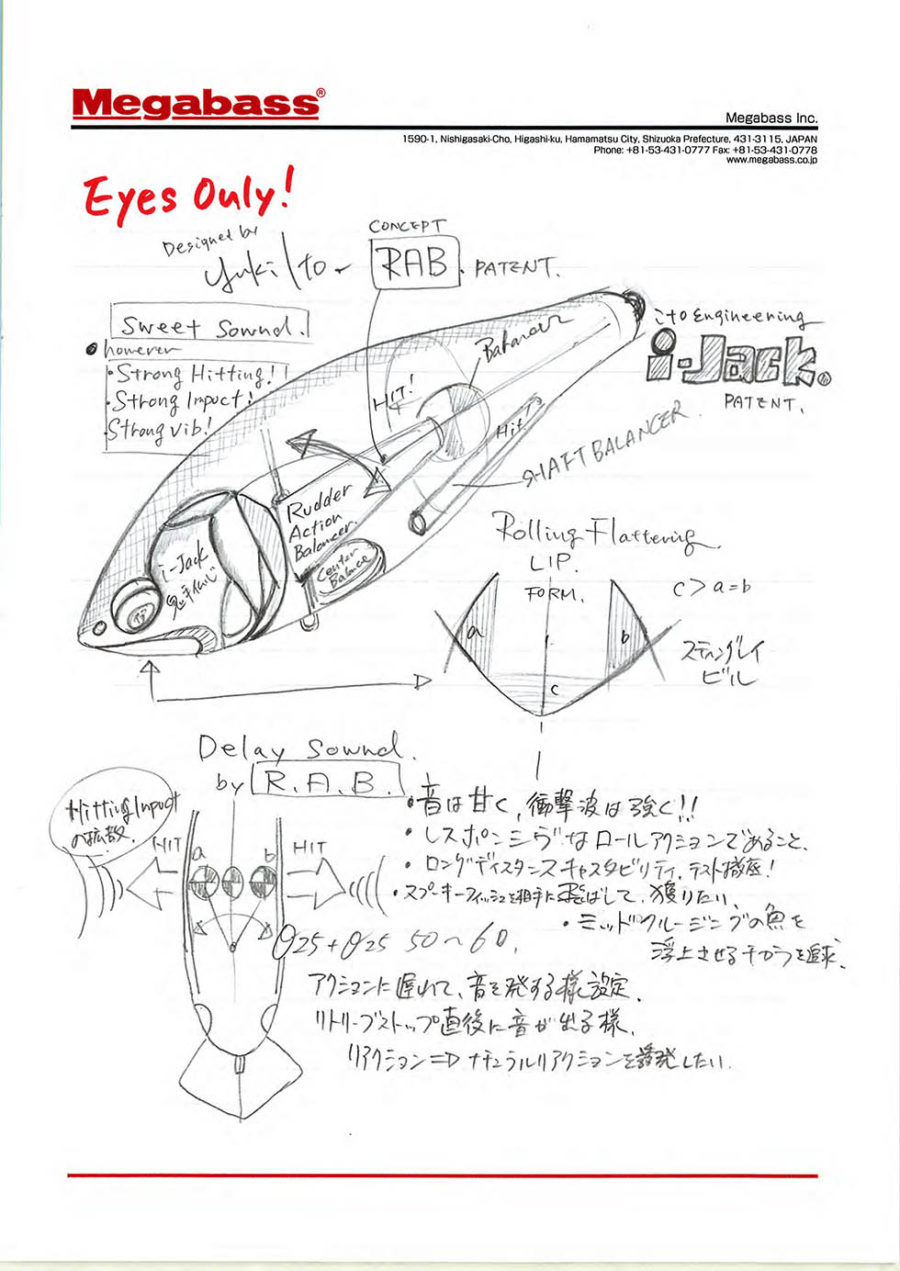 Megabass®
Megabass Inc.
1590-1, Nishigasaki-Cho, Higashi-ku, Hamamatsu City, Shizuoka Prefecture, 431-3115, JAPAN
Phone: +81-53-431-0777 Fax: +81-53-431-0778
www.megabass.co.jp
Eyes Only!
Designed by
Yuki Ito
CONCEPT
RAB. PATENT.
Sweet Sownd.
however
・Strong Hitting!!
・Strong Inpuct!
Strong Vib!
HIT!
Balancer
Ito Engineering
i-Jack.
PATENT.
Hit
SHAFT BALANCER.
Rudder
Action
Balancer.
Center
Balance
i-Jack
Rolling Flattering.
LIP.
FORM.
c > a = b
a
b
c
スティングレイ
ビル
Delay Sownd.
by R.A.B.
Hitting Inpuct
の拡散.
HIT
a
b
HIT
・音は甘く, 衝撃波は強く!!
・レスポンシヴなロールアクションであること、
・ロングディスタンスキャスタビリティ, テスト徹底!
・スプーキーフィッシュを相手に飛ばして、獲りたい、
・ミッドクルージングの魚を
浮上させるチカラを追求、
θ25 + θ25 50〜60,
アクションに遅れて、音を発する様設定、
リトリーブストップ直後に音が出る様、
リアクション⇒ナチュラルリアクションを誘発したい.